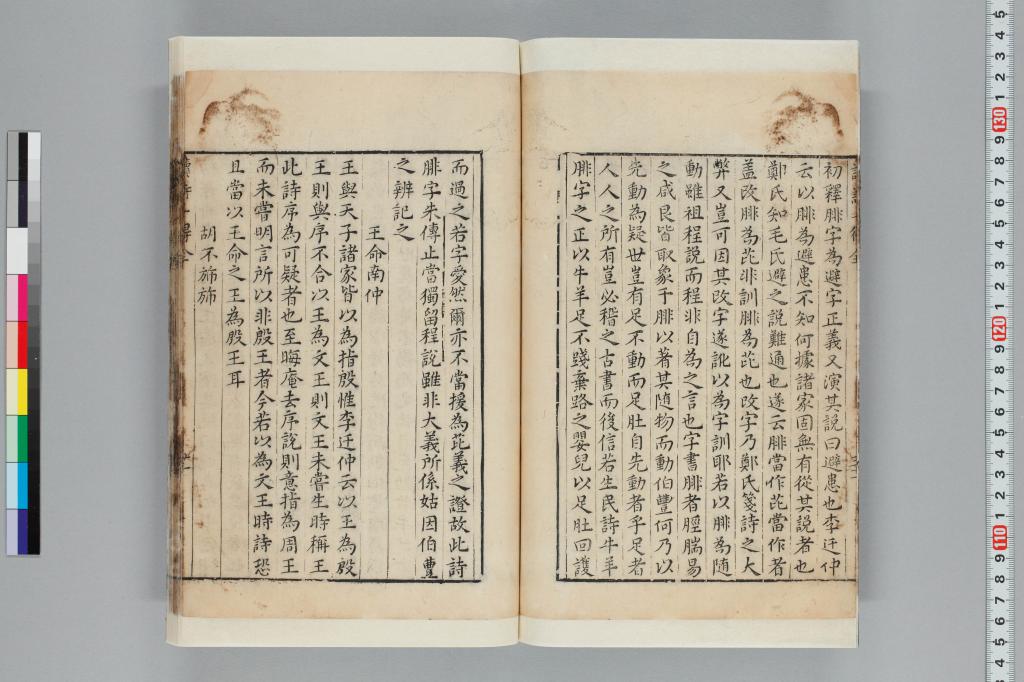 初釋腓字為避字正義又演其說曰避患也李迂仲
云以腓為避患不知何據諸家固無有從其說者也
鄭氏知毛氏避之說難通也遂云腓當作芘當作者
盖改腓為芘非訓腓為芘也改字乃鄭氏箋詩之大
弊又豈可因其改字遂訛以為字訓耶若以腓為隨
動雖祖程說而程非自為之言也字書腓者脛腨易
之咸艮皆取象于腓以著其随物而動伯豐何乃以
先動為疑世豈有足不動而足肚自先動者乎足者
人人之所有豈必稽之古書而後信若生民詩牛羊
腓字之正以牛羊足不踐棄路之嬰兒以足肚回護
而過之若字愛然爾亦不當援為芘義之證故此詩
腓字朱傳止當獨留程說雖非大義所係姑因伯豐
之辨記之
王命南仲
王與天子諸家皆以為指殷惟李迂仲云以王為殷
王則與序不合以王為文王則文王未嘗生時稱王
此詩序為可疑者也至晦庵去序說則意指為周王
而未嘗明言所以非殷王者今若以為文王時詩恐
且當以王命之王為殷王耳
胡不斾斾